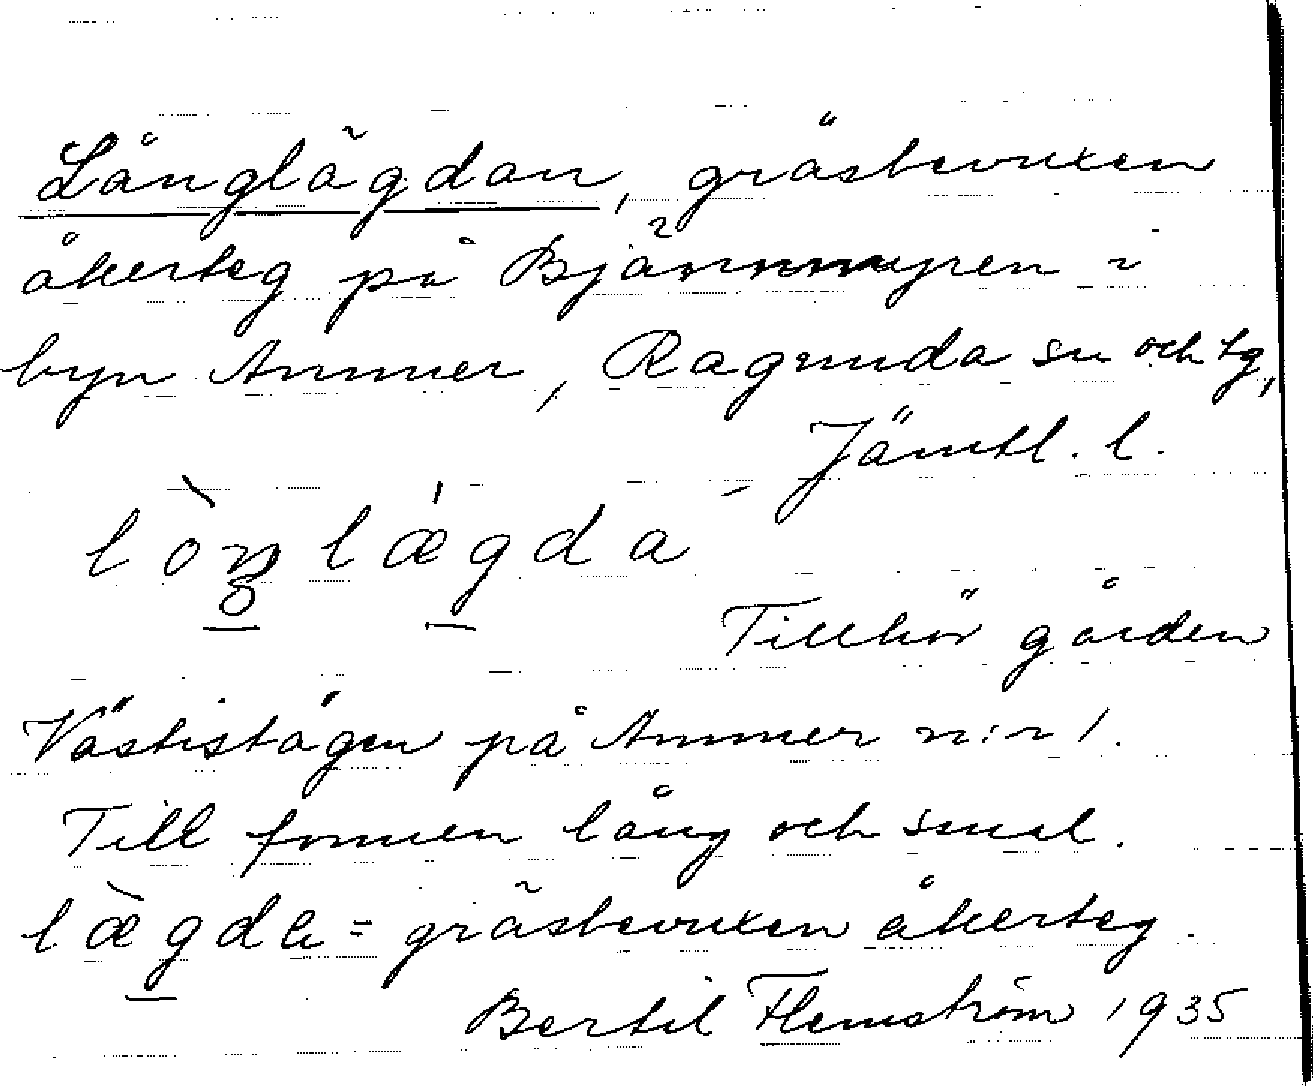 Långlägdan, gräsbevuxen
åkerteg på Björnmyren i
byn Ammer, Ragunda sn och tg,
Jämtl. l.
lòŋlægda
Tillhör gården
på Ammer n:r 1.
Till formen lång och smal.
lægda = gräsbevuxen åkerteg.
Bertil Flemström 1935